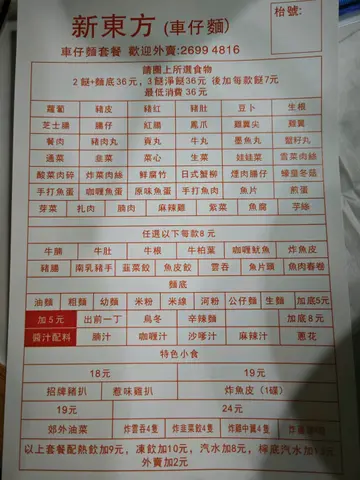 枱號:
新東方 (車仔麵)
車仔麵套餐 歡迎外賣:2699 4816
請圈上所選食物
2 餸+麵底36元, 3餸淨餸36元 後加每款餸7元
最低消費 36元
蘿蔔 豬皮 豬紅 豬肚 豆卜 生根
芝士腸 腸仔 紅腸 鳳爪 雞翼尖 雞翼
餐肉 豬肉丸 貢丸 牛丸 墨魚丸 蟹籽丸
通菜 韭菜 菜心 生菜 娃娃菜 雪菜肉絲
酸菜肉碎 炸菜肉絲 鮮腐竹 日式蟹柳 煙肉腸仔 蠔皇冬菇
手打魚蛋 咖喱魚蛋 原味魚蛋 手打魚肉 魚片 煎蛋
芽菜 扎肉 腩肉 麻辣雞 紫菜 魚腐 芋絲
任選以下每款8元
牛腩 牛肚 牛根 牛柏葉 咖喱魷魚 炸魚皮
豬腩 南乳豬手 韭菜餃 魚皮餃 雲吞 魚片頭 魚肉春卷
麵底
油麵 粗麵 幼麵 米粉 米線 河粉 公仔麵 生麵 加底5元
加5元 出前一丁 烏冬 辛辣麵 加底8元
醬汁配料 腩汁 咖喱汁 沙嗲汁 麻辣汁 蔥花
特色小食
18元 19元
招牌豬扒 惹味雞扒 炸魚皮 (1碟)
19元 24元
郊外油菜 炸雲吞4隻 炸韭菜餃4隻 炸雞中翼4隻
以上套餐配熱飲加9元, 凍飲加10元, 汽水加8元, 樽底汽水加
外賣加2元